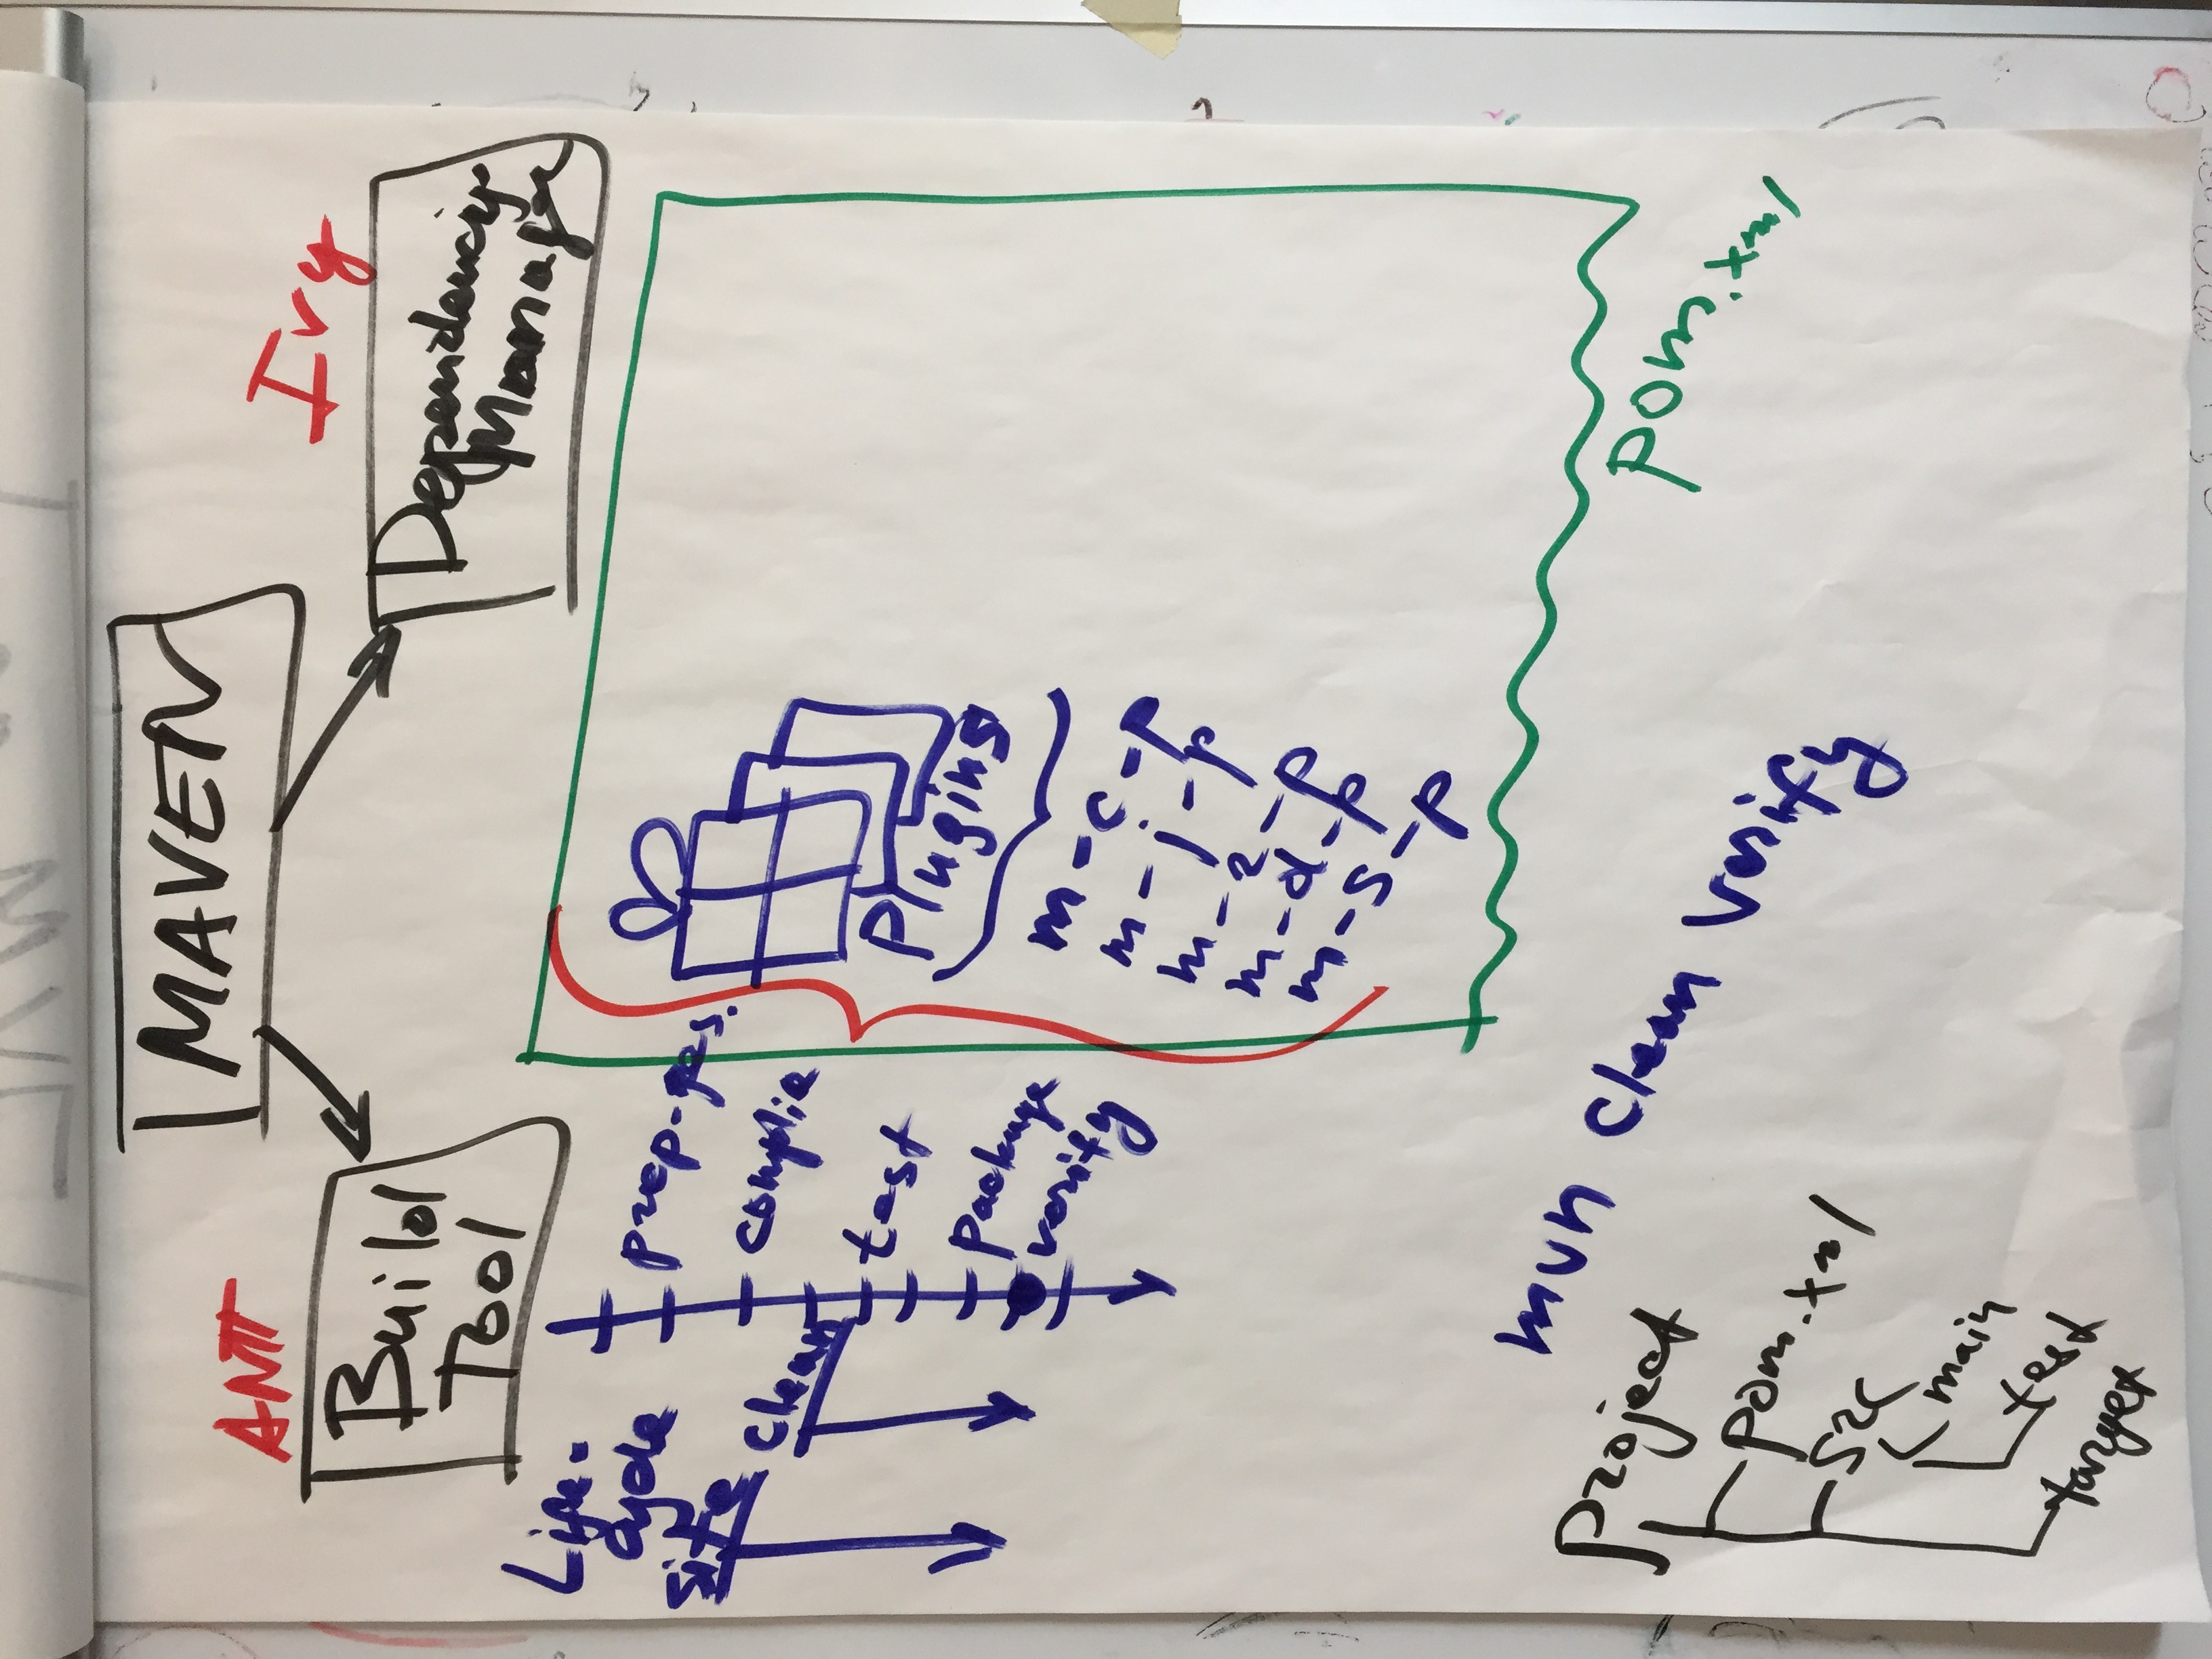 MAVEN
ANT
Ivy
Build
Tool
Dependency
Manager
Life-
cycle
site
clean
prep-res.
complie
test
package
verify
Plugins
m-c-p
m-j-p
m-r-p
m-d-p
m-s-p
mvn clean verify
pom.xml
project
pom.xml
src
main
test
target